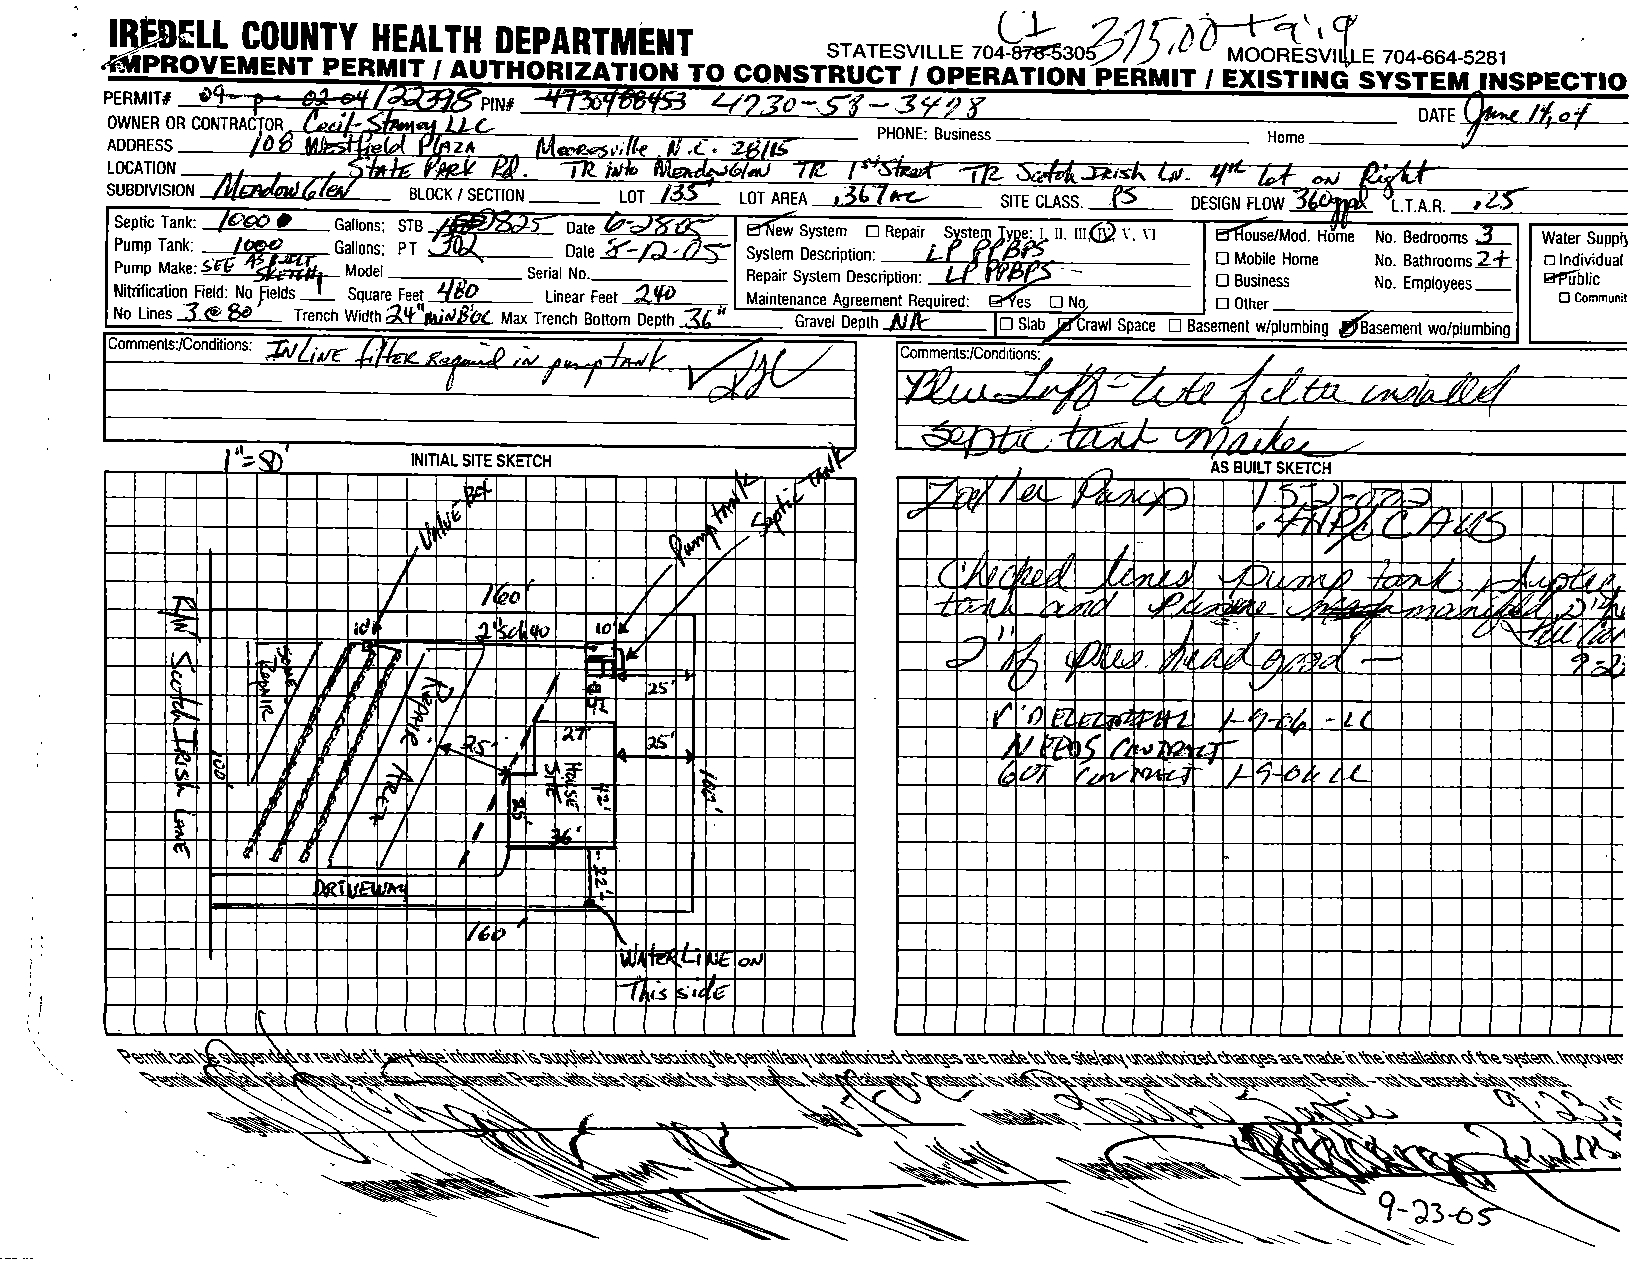 IREDELL COUNTY HEALTH DEPARTMENT
STATESVILLE 704-878-5305 375.00 MOORESVILLE 704-664-5281
IMPROVEMENT PERMIT / AUTHORIZATION TO CONSTRUCT / OPERATION PERMIT / EXISTING SYSTEM INSPECTIO
PERMIT# 09-p-02-04/22398 PIN# 4730488453 4730-58-3498 DATE June 14, 04
OWNER OR CONTRACTOR Cecil-Stamey LLC PHONE: Business Home
ADDRESS 108 Westfield PLAZA Mooresville N.C. 28115
LOCATION STATE PARK Rd. TR into MEADOWGlen TR 1st Street TR Scotch Irish Ln. 4th Lot on Right
SUBDIVISION MEADOWGlen BLOCK / SECTION LOT 135 LOT AREA .367 AC SITE CLASS. PS DESIGN FLOW 360gpd L.T.A.R. .25
Septic Tank: 1000 Gallons: STB 825 Date 6-28-05
Pump Tank: 1000 Gallons: PT 302 Date 8-12-05
Pump Make: SEE AS BUILT SKETCH Model Serial No.
Nitrification Field: No Fields 1 Square Feet 480 Linear Feet 240
No Lines 3 @ 80' Trench Width 24" min B'OC Max Trench Bottom Depth 36" Gravel Depth NA
New System Repair System Type: I, II, III, IV, V, VI
System Description: LP PPBPS
Repair System Description: LP PPBPS
Maintenance Agreement Required: Yes No
Slab Crawl Space Basement w/plumbing Basement wo/plumbing
House/Mod. Home No. Bedrooms 3
Mobile Home No. Bathrooms 2+
Business No. Employees
Other
Water Supply
Individual
Public
Communit
Comments:/Conditions: INLINE filter Required in pump tank
Comments:/Conditions:
filter installed
Septic tank marker
1"=50' INITIAL SITE SKETCH
VALVE BOX
Pump TANK
Septic TANK
160'
10' 2" Sch 40 10'
R/W Scotch IRISH LANE
100'
SOME REPAIR
REPAIR AREA
25'
25'
27'
25'
HOUSE SITE
42'
25'
36'
100'
22'
DRIVEWAY
160'
WATER LINE ON
This side
AS BUILT SKETCH
Zoeller Pump 152-
.4HP
Checked lines, pump tank, septic
tank and manifold
2" of pres. head good
9-2
ELECTRICAL 1-9-06 - LC
NEEDS CONTRACT
GOT CONTRACT 1-9-06 LC
Permit can be suspended or revoked if any false information is supplied toward securing the permit/any unauthorized changes are made to the site/any unauthorized changes are made in the installation of the system. Improver
Septic 9-23
9-23-05